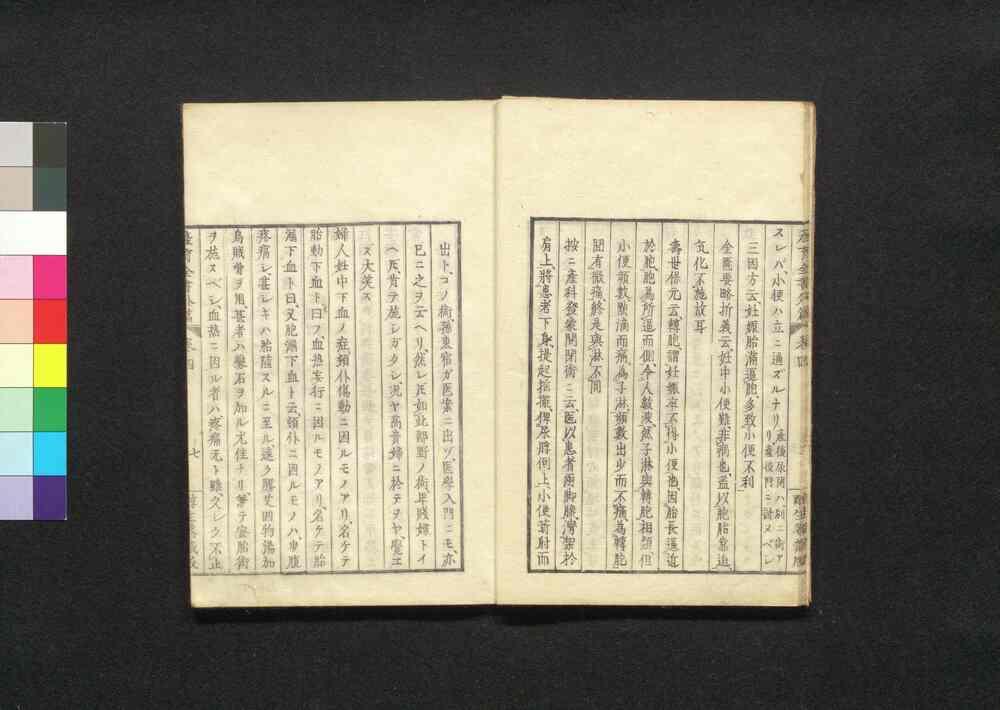 スレバ、小便ハ立ニ通ズルナリ、産後尿閉ハ別ニ術アリ、産後門ニ詳ヌベシ
三因方云、妊娠胎滿逼胞、多致小便不利
金匱要略折義云、妊中小便難、非病也、蓋以胞胎靠迫、
気化不施故耳
壽世保元云、轉胞謂妊娠卒不得小便也、因胎長逼近
於胞、胞爲所逼而側、令人數溲、然子淋與轉胞相類、但
小便頻數點滴而痛、爲子淋、頻數出少而不痛、爲轉胞
間有微痛、終是與淋不同
按ニ産科發蒙開閉術ニ云、医以患者兩脚膝灣架於
肩上、將患者下身提起搖擺、俾尿脬倒上、小便葥射而
出ト、コノ術孫東宿ガ医案ニ出ヅ、医學入門ニモ、亦
已ニ之ヲ云ヘリ、然レ𪜈如此鄙野ノ術、卑賤嫁トイ
ヘ𪜈、肯テ施シガタシ、况ヤ高貴婦ニ於テヲヤ、覺エ
ズ大笑ス
婦人妊中下血ノ症、顛仆傷動ニ因ルモノアリ、名ケテ
胎動下血ト曰フ、血熱妄行ニ因ルモノアリ、名ケテ胎
漏下血ト曰、又胞漏下血ト云、顛仆ニ因ルモノハ、少腹
疼痛シ、甚シキハ胎墮スルニ至ル、速ク膠艾四物湯加
烏賊骨ヲ用、甚者ハ礬石ヲ加ル尤佳ナリ、兼テ安胎術
ヲ施スベシ、血熱ニ因ル者ハ疼痛无ト雖、久シク不止